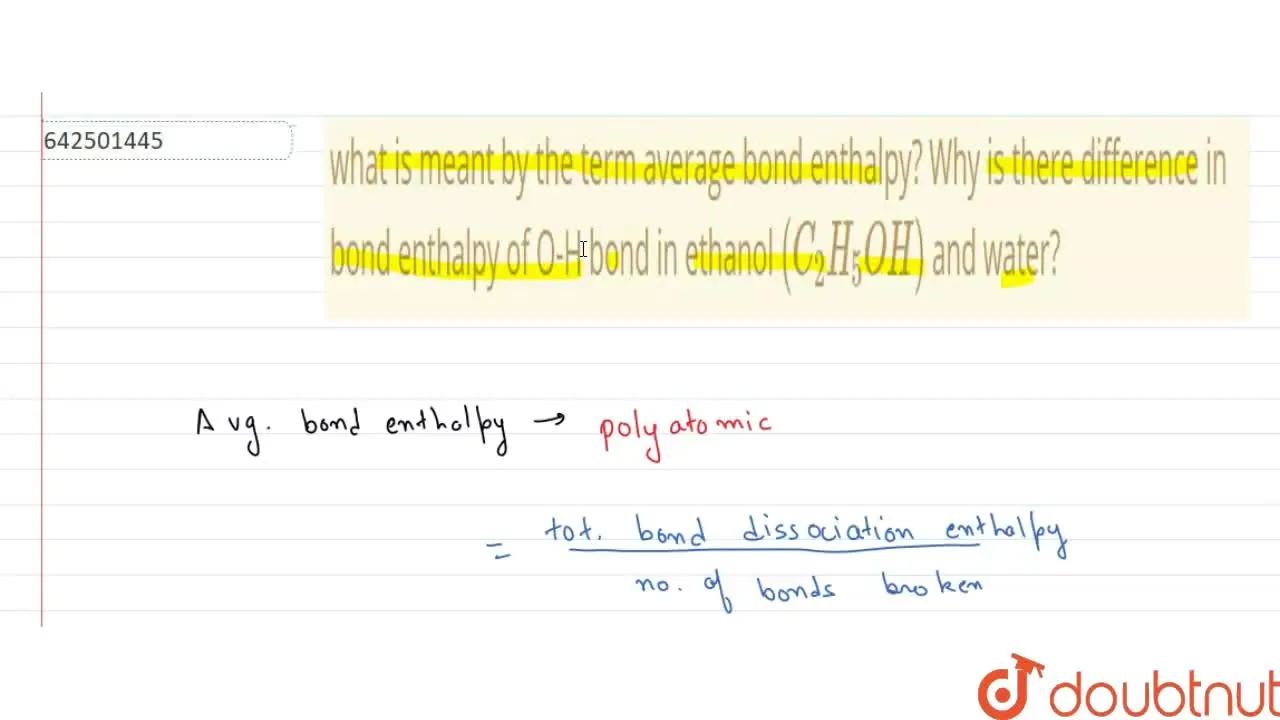 642501445
what is meant by the term average bond enthalpy? Why is there difference in
bond enthalpy of O-H bond in ethanol (C₂H₅OH) and water?
Avg. bond enthalpy → polyatomic
= tot. bond dissociation enthalpy
no. of bonds broken
doubtnut